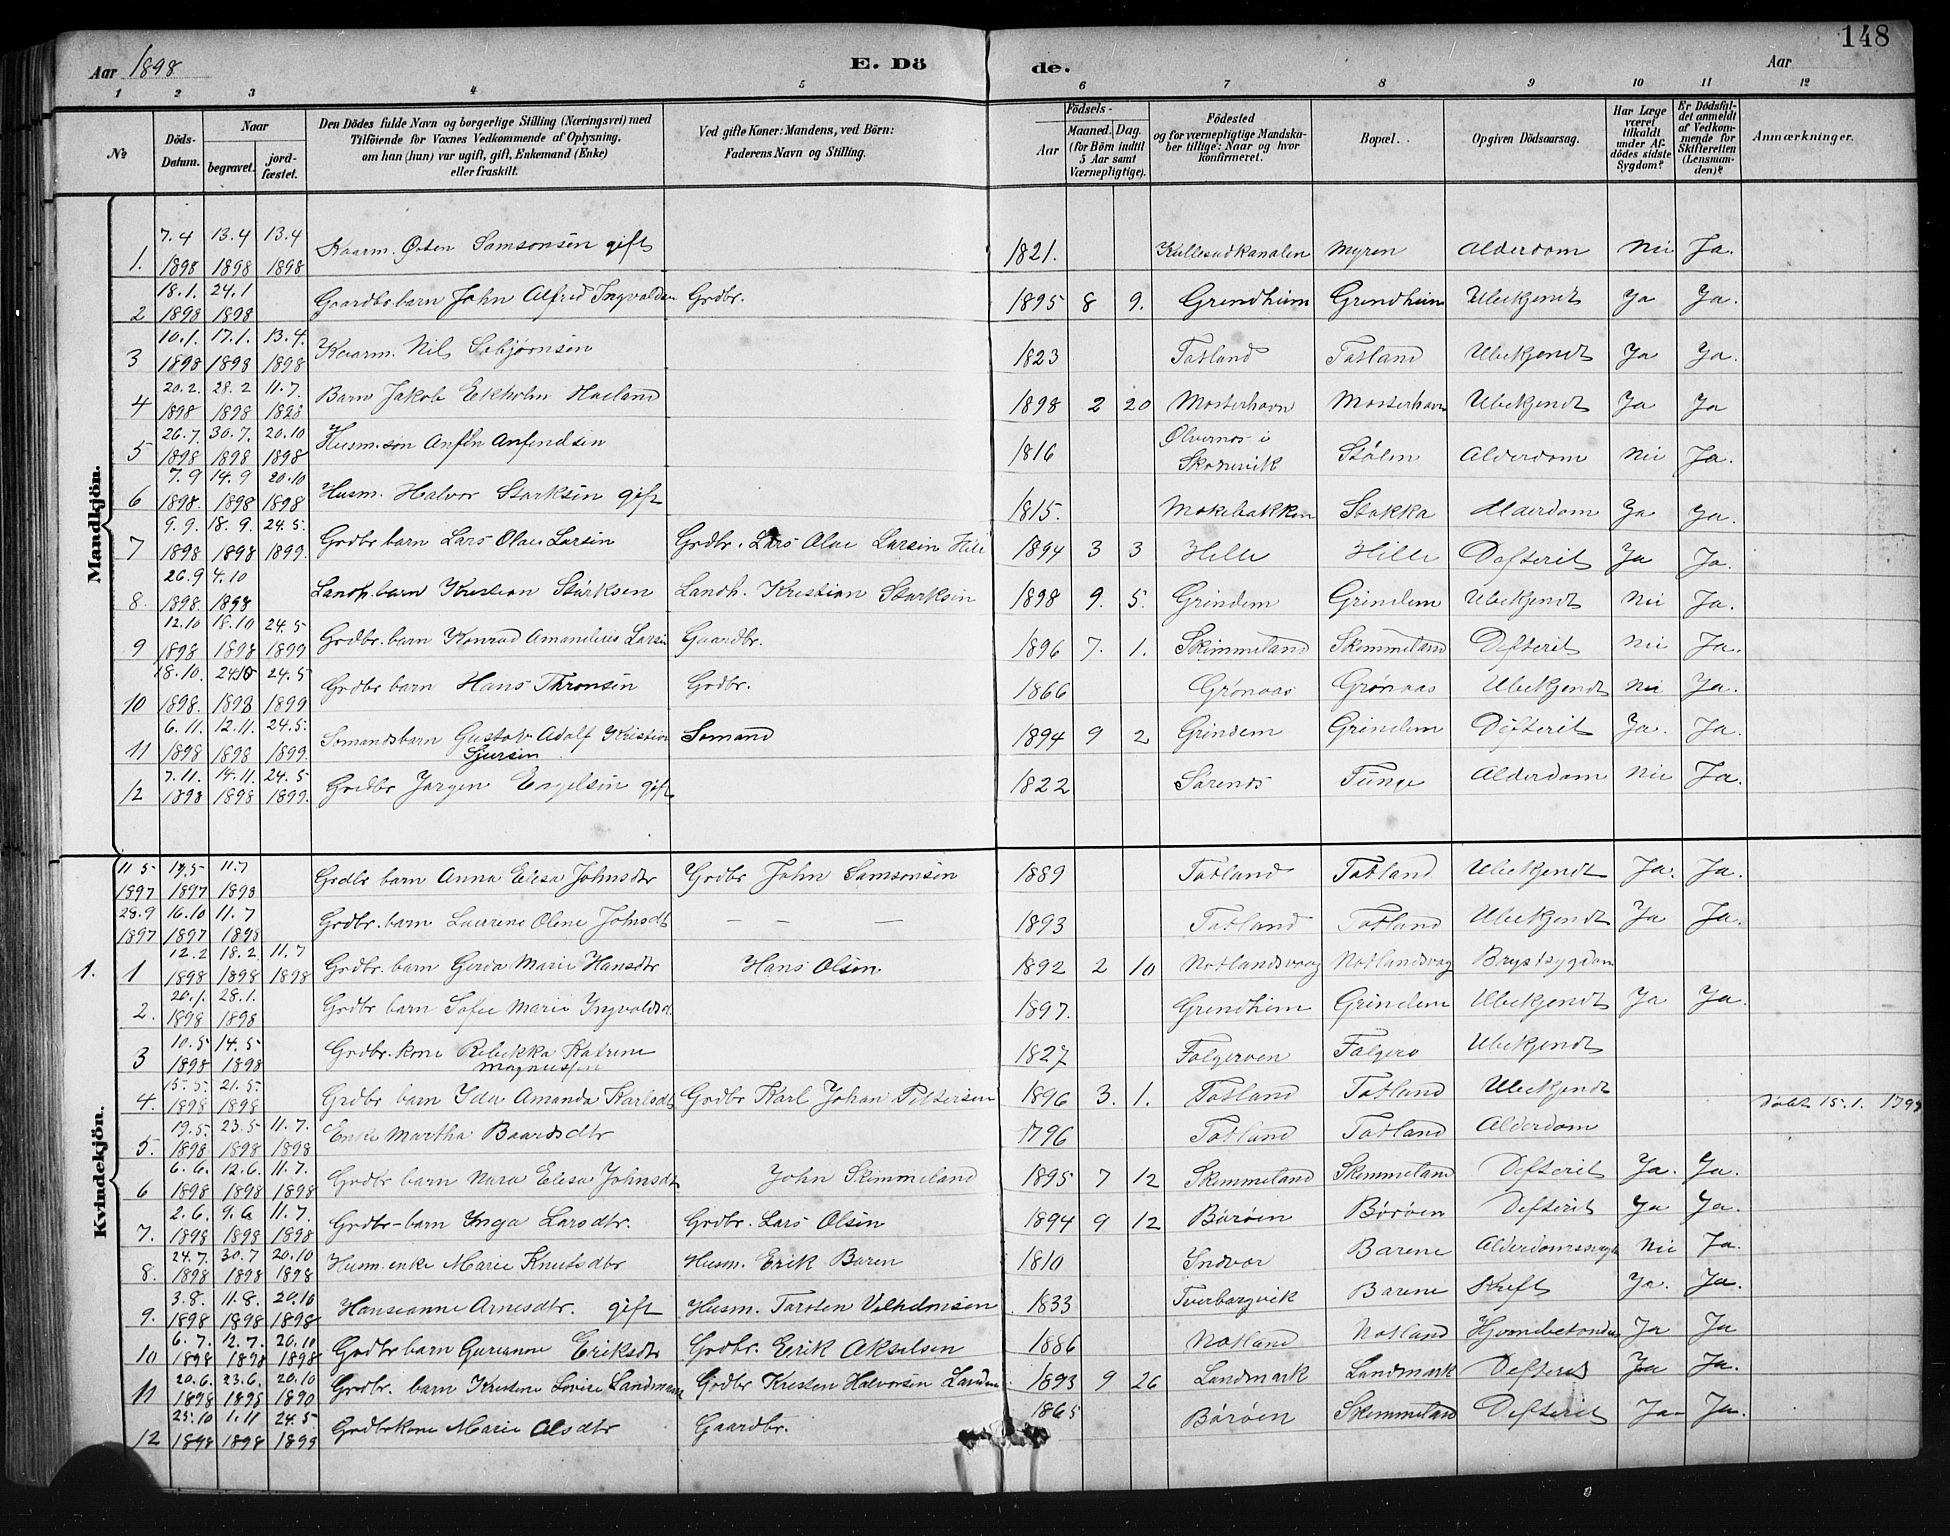 148
Aar 1898
E. Dö de.
Aar
1 2 3 4 5 6 7 8 9 10 11 12
No
Döds-Datum.
Naar
begravet.
jord-fæstet.
Den Dödes fulde Navn og borgerlige Stilling (Næringsvei) med
Tilföiende for Voxnes Vedkommende af Oplysning,
om han (hun) var ugift, gift, Enkemand (Enke)
eller fraskilt.
Ved gifte Koner: Mandens, ved Börn:
Faderens Navn og Stilling.
Födsels-
Aar
Maaned. Dag.
(for Börn indtil
5 Aar samt
Værnepligtige).
Födested
og for værnepligtige Mandska-
ber tillige: Naar og hvor
konfirmeret.
Bopæl.
Opgiven Dödsaarsag.
Har Læge
været
tilkaldt
under Af-
dödes sidste
Sygdom?
Er Dödsfal-
det anmeldt
af Vedkom-
mende for
Skifteretten
(Lensman-
den)?
Anmærkninger.
Mandkjön.
1. 7.4 1898 13.4 1898 13.4 1898 Østen Samsonsen gift 1821. Kullesudkanalen Myren Alderdom Nei Ja.
2 18.1. 1898 24.1 1898 Gaardbr. barn John Alfred Ingvaldsen Grdbr. 1895 8 9. Grendheim Grendheim Ubekjendt Ja Ja.
3 10.1. 1898 17.1. 1898 13.4. 1898 Nils 1823 Totland Totland Ubekjendt Ja Ja.
4 20.2. 1898 28.2 1898 11.7. 1898 Barn Jakob Ekholm Haeland 1898 2 20 Mosterhavn Mosterhavn Ubekjendt Ja Ja
5 26.7. 1898 30.7. 1898 20.10 1898 Husm. søn Anfin Anfendsen 1816 Ølvernes i Skonevik Stølen Alderdom Nei Ja.
6 7.9 1898. 14.9 1898 20.10 1898 Husm. Halvor Storksen gift 1815. Mokebakken Stokka Alderdom Ja Ja.
7 9.9. 1898 18.9. 1898 24.5. 1899. Grdbr barn Lars Olai Larsen Grdbr. Lars Olai Larsen Hille 1894 3 3 Hille Hille Defterit Ja Ja.
8. 26.9 1898. 4.10 1898 Landh. barn Kristian Størksen Landh. Kristian Størksen 1898 9. 5. Grindem Grindem Ubekjendt Nei Ja.
9 12.10 1898 18.10 1898 24.5 1899 Grdbr. barn Konrad Amandius Larsen Gaardbr. 1896 7. 1. Skimmeland Skimmeland Defterit Nei Ja.
10 18.10. 1898. 24.10 1898 24.5 1899 Grdbr barn Hans Thronsen Grdbr. 1866 Grønaas Grønaas Ubekjendt Nei Ja.
11 6.11. 1898 12.11. 1898 24.5. 1899. Sømandsbarn Gustav Adolf Kristian Sjursen Sømand 1894 9 2 Grindem Grindem Difterit Ja. Ja.
12 7.11. 1898 14.11. 1898 24.5 1899. Grdbr Jørgen Engelsen gift 1822 Sørenes Tunge Alderdom Nei Ja.
Kvindekjön.
11.5 1897 17.5 1897 11.7 1898 Grdbr barn Anna Elesa Johnsdtr Grdbr John Samsonsen 1889 Totland Totland Ubekjendt Ja. Ja.
28.9 1897 16.10 1897 11.7 1898 Grdbr. barn Laurene Olene Johnsdt — — — 1893 Totland Totland Ubekjendt Ja Ja.
1. 1 12.2 1898 18.2 1898 11.7 1898 Grdbr. barn Gerda Marie Hansdtr Hans Olsen 1892 2 10 Notlandsvaag Notlandsvag Brystsygdom
2. 20.1. 1898 28.1. 1898 Grdbr barn Sofie Marie Ingvaldsd. 1897. Grendheim Grindem Ubekjendt Ja Ja.
3 10.5 1898 14.5- 1898 Grdbr. kone Rebekka Katrene Magnussen 1827 Folgeroen Folgero Ubekjendt
4. 15.5. 1898 21.5- 1898 Grdbr barn Ida Amanda Karlsdt Grdbr Karl Johan Pettersen 1896 3. 1. Totland Totland Ubekjendt
5. 19.5. 1898 23.5 1898 11.7. 1898 Enke Martha Baardsdtr 1796 Totland Totland Alderdom Døbt 15.1. 1797
6 6.6. 1898 12.6. 1898 11.7. 1898 Grdbr barn Nara Elesa Johnsdt John Skimmeland 1895 7 12 Skimmeland Skimmeland Defterit Ja. Ja.
7. 2.6. 1898 9.6 1898 11.7. 1898 Grdbr-barn Inga Larsdtr. Grdbr. Lars Olsen 1894 9 12 Børøen Børøen Defterit Ja Ja.
8. 24.7. 1898 30.7 1898 20.10 1898 Husm. enke Marie Knutsdtr Husm. Erik Baren 1810 Indvær Barene Nei Ja.
9. 3.8. 1898 11.8. 1898 20.10 1898 Hanseanne Arnesdtr. gift Husm. Torsten Vilhelmsen 1833 Tverborgvik Barene Kreft Ja. Ja.
10 6.7. 1898 12.7. 1898 20.10 1898 Grdbr barn Gurianne Eriksdtr Grdbr. Erik Akselsen 1886 Notland Notland Ja Ja
11 20.6. 1898 23.6. 1898 20.10 1890 Grdbr. barn Kristene Lovise Landmark Grdbr Kresten Halvorsen 1893 9 26 Landmark Landmark Defterit Ja Ja.
12 25.10 1898 1.11 1898 24.5 1899 Grdbrkone Marie Olsdtr Gaardbr. 1865 Børøen Skimmeland Defterit Ja Ja.